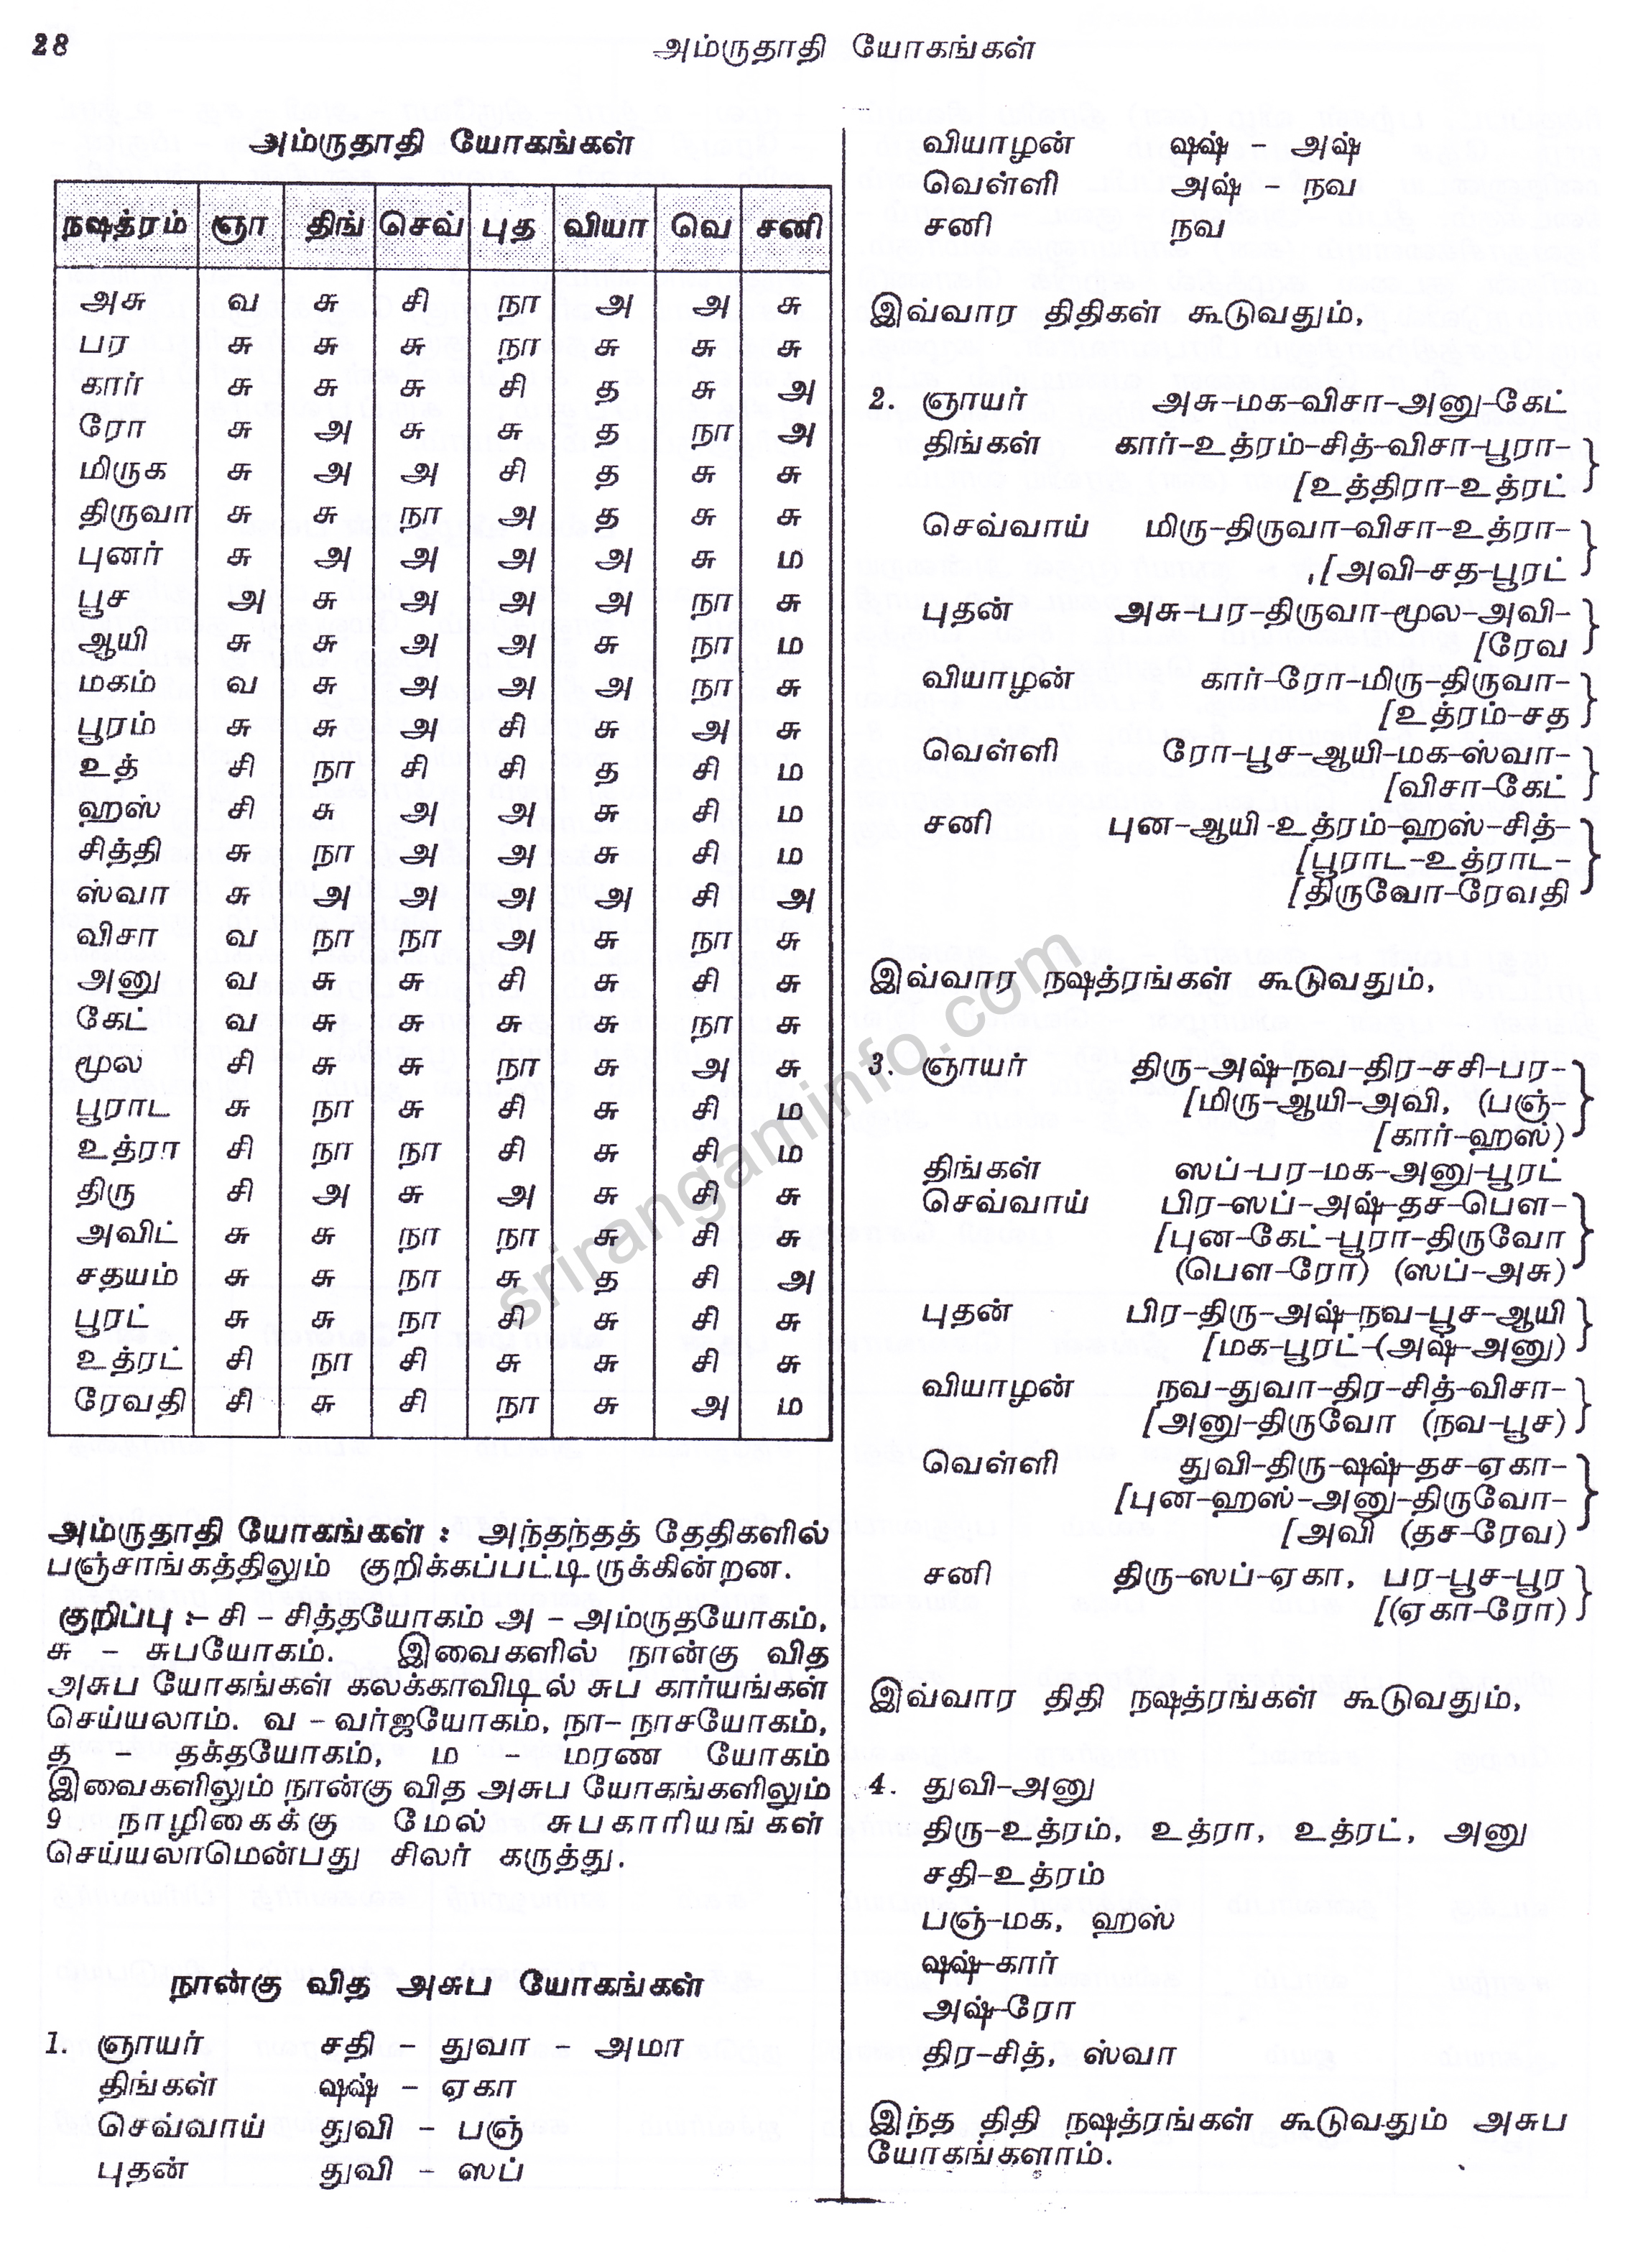 28
அம்ருதாதி யோகங்கள்
அம்ருதாதி யோகங்கள்
நஷத்ரம் ஞா திங் செவ் புத வியா வெ சனி
அசு வ சு சி நா அ அ சு
பர சு சு சு நா சு சு சு
கார் சு சு சு சி த சு அ
ரோ சு அ சு சு த நா அ
மிருக சு அ அ சி த சு சு
திருவா சு சு நா அ த சு சு
புனர் சு அ அ அ அ சு ம
பூச அ சு அ அ அ நா சு
ஆயி சு சு அ அ சு நா ம
மகம் வ சு அ அ அ நா சு
பூரம் சு சு அ சி சு அ சு
உத் சி நா சி சி த சி ம
ஹஸ் சி சு அ அ சு சி ம
சித்தி சு நா அ அ சு சி ம
ஸ்வா சு அ அ அ அ சி அ
விசா வ நா நா அ சு நா சு
அனு வ சு சு சி சு சி சு
கேட் வ சு சு சு சு நா சு
மூல சி சு சு நா சு அ சு
பூராட சு நா சு சி சு சி ம
உத்ரா சி நா நா சி சு சி ம
திரு சி அ சு அ சு சி சு
அவிட் சு சு நா நா சு சி சு
சதயம் சு சு நா சு த சி அ
பூரட் சு சு நா சி சு சி சு
உத்ரட் சி நா சி சு சு சி சு
ரேவதி சி சு சி நா சு அ ம
அம்ருதாதி யோகங்கள் : அந்தந்தத் தேதிகளில்
பஞ்சாங்கத்திலும் குறிக்கப்பட்டிருக்கின்றன.
குறிப்பு :– சி – சித்தயோகம் அ – அம்ருதயோகம்,
சு – சுபயோகம். இவைகளில் நான்கு வித
அசுப யோகங்கள் கலக்காவிடில் சுப கார்யங்கள்
செய்யலாம். வ – வர்ஜயோகம், நா– நாசயோகம்,
த – தக்தயோகம், ம – மரண யோகம்
இவைகளிலும் நான்கு வித அசுப யோகங்களிலும்
9 நாழிகைக்கு மேல் சுபகாரியங்கள்
செய்யலாமென்பது சிலர் கருத்து.
நான்கு வித அசுப யோகங்கள்
1. ஞாயர் சதி – துவா – அமா
திங்கள் ஷஷ் – ஏகா
செவ்வாய் துவி – பஞ்
புதன் துவி – ஸப்
வியாழன் ஷஷ் – அஷ்
வெள்ளி அஷ் – நவ
சனி நவ
இவ்வார திதிகள் கூடுவதும்,
2. ஞாயர் அசு–மக–விசா–அனு–கேட்
திங்கள் கார்–உத்ரம்–சித்–விசா–பூரா–
[உத்திரா–உத்ரட்
செவ்வாய் மிரு–திருவா–விசா–உத்ரா–
[அவி–சத–பூரட்
புதன் அசு–பர–திருவா–மூல–அவி–
[ரேவ
வியாழன் கார்–ரோ–மிரு–திருவா–
[உத்ரம்–சத
வெள்ளி ரோ–பூச–ஆயி–மக–ஸ்வா–
[விசா–கேட்
சனி புன–ஆயி–உத்ரம்–ஹஸ்–சித்–
[பூராட–உத்ராட–
[திருவோ–ரேவதி
இவ்வார நஷத்ரங்கள் கூடுவதும்,
3. ஞாயர் திரு–அஷ்–நவ–திர–சசி–பர–
[மிரு–ஆயி–அவி, (பஞ்–
[கார்–ஹஸ்)
திங்கள் ஸப்–பர–மக–அனு–பூரட்
செவ்வாய் பிர–ஸப்–அஷ்–தச–பௌ–
[புன–கேட்–பூரா–திருவோ
(பௌ–ரோ) (ஸப்–அசு)
புதன் பிர–திரு–அஷ்–நவ–பூச–ஆயி
[மக–பூரட்–(அஷ்–அனு)
வியாழன் நவ–துவா–திர–சித்–விசா–
[அனு–திருவோ (நவ–பூச)
வெள்ளி துவி–திரு–ஷஷ்–தச–ஏகா–
[புன–ஹஸ்–அனு–திருவோ–
[அவி (தச–ரேவ)
சனி திரு–ஸப்–ஏகா, பர–பூச–பூர
[(ஏகா–ரோ)
இவ்வார திதி நஷத்ரங்கள் கூடுவதும்,
4. துவி–அனு
திரு–உத்ரம், உத்ரா, உத்ரட், அனு
சதி–உத்ரம்
பஞ்–மக, ஹஸ்
ஷஷ்–கார்
அஷ்–ரோ
திர–சித், ஸ்வா
இந்த திதி நஷத்ரங்கள் கூடுவதும் அசுப
யோகங்களாம்.
srirangaminfo.com